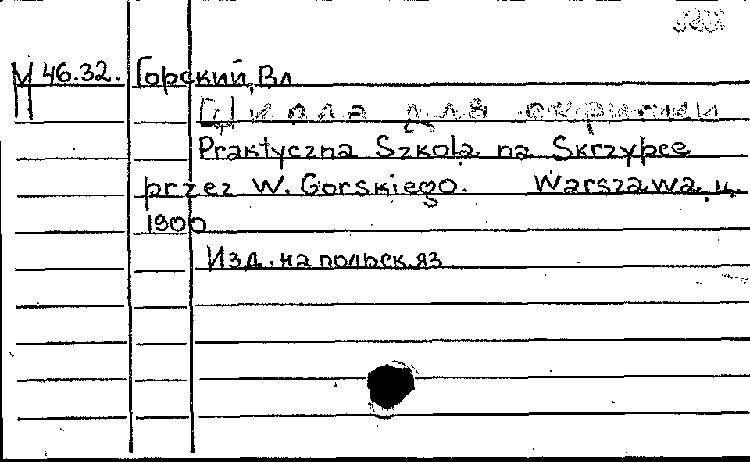 М 46.32. Горский, Вл
Школа для скрипки
Praktyczna Szkola na Skrzypce
przez W. Gorskiego. Warszawa, ц.
1900
Изд. на польск. яз